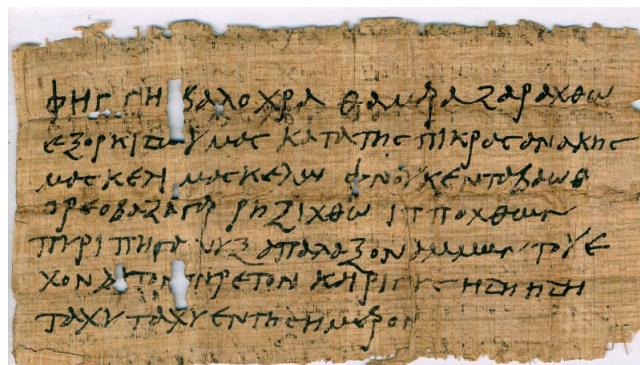 βαλοχρα θαμρα ζαραχθω
εξορκιζω υμας κατα της πικρας ανακης
μασκελι μασκελλω φνουκενταβαωθ
ορεοβαζαγρα ρηζιχθω ιππoχθων
πυριπηγανυξ απαλαξον του ε
χον πυρετον και ηδη ηδη
ταχυ ταχυ εν τη σημερον